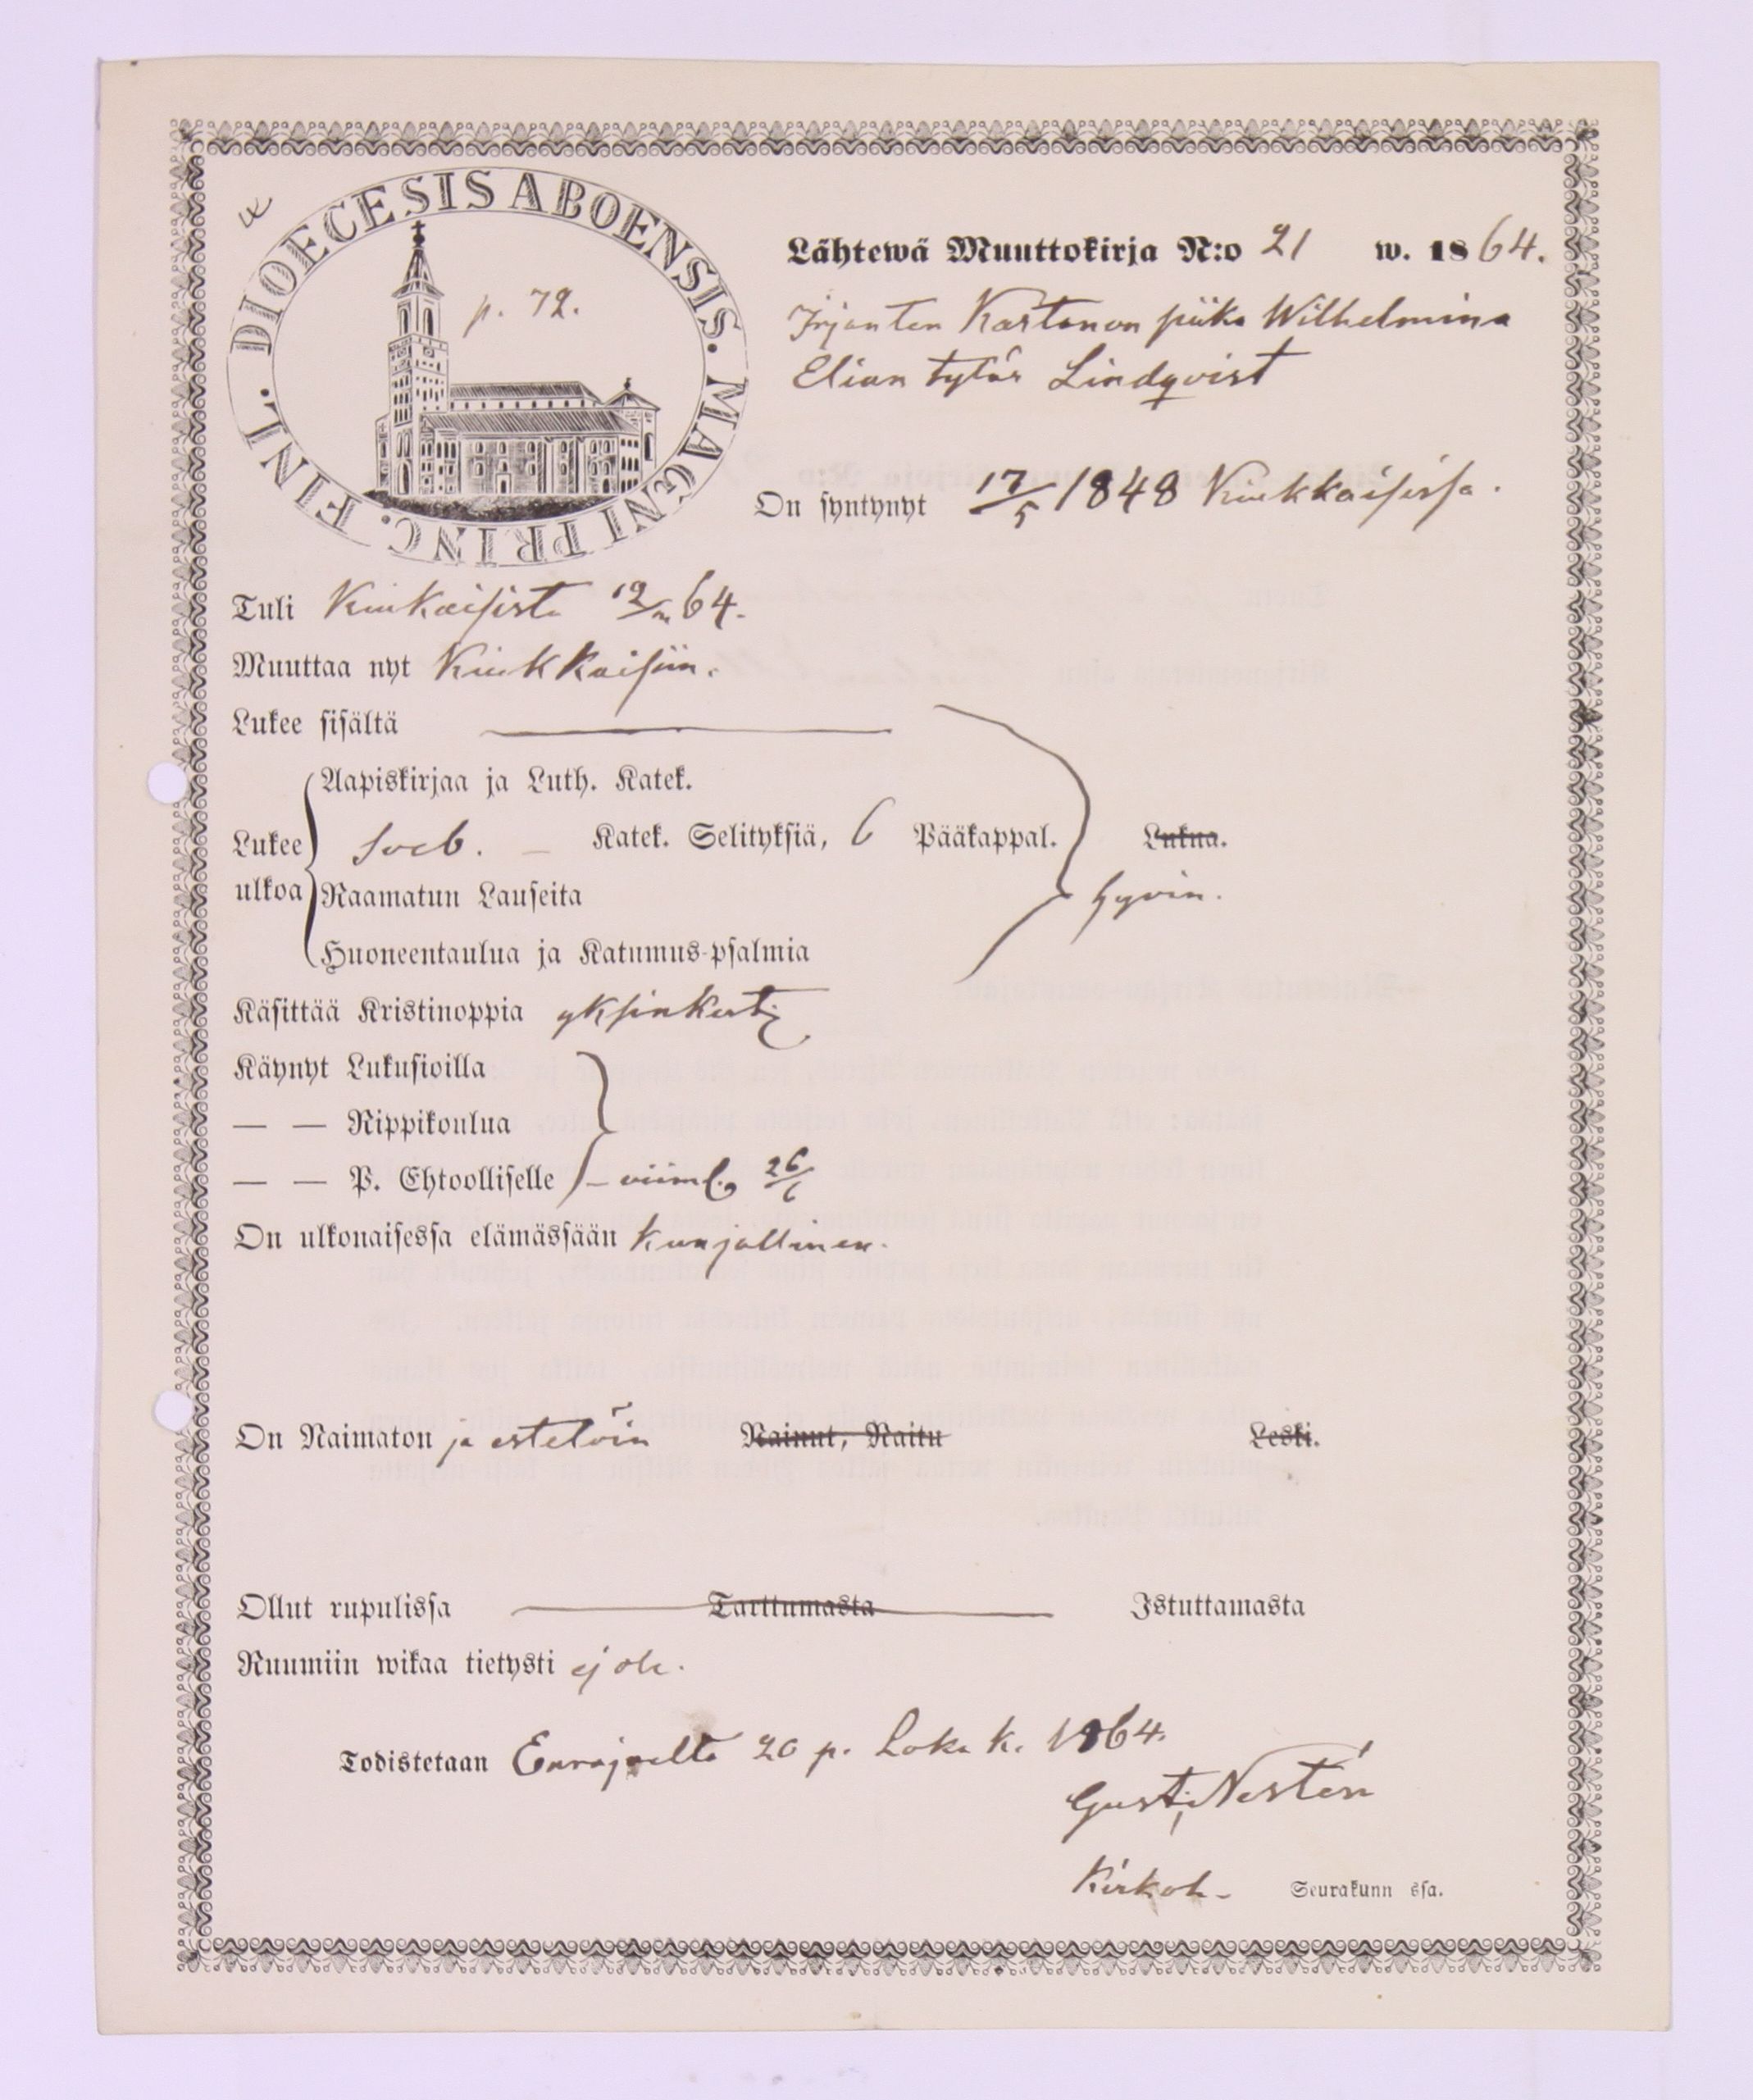 DIOECESIS ABOENSIS. MAGNI PRINC. FINL.
p. 72.
Lähtewä Muuttokirja N:o 21 w. 1864.
Irjanten Kartanon piika Wilhelmina
Elian tytär Lindqvist
On syntynyt 17/5 1848 Kiukkaisissa.
Tuli Kiukaisista 64.
Muuttaa nyt Kiukkaisiin.
Lukee sisältä
Aapiskirjaa ja Luth. Katek.
Lukee ulkoa Sveb. — Katek. Selityksiä, 6 Pääkappal. Lukua.
hyvin.
Raamatun Lauseita
Huoneentaulua ja Katumus-psalmia
Käsittää Kristinoppia yksinkert:
Käynyt Lukusioilla
— — Rippikoulua
— — P. Ehtoolliselle — viiml. 26/6
On ulkonaisessa elämässään kunjallinen.
On Naimaton ja estetöin Nainut, Naitu Leski.
Ollut rupulissa Tarttumasta Istuttamasta
Ruumiin wikaa tietysti ej ole.
Todistetaan Eurajoelta 20 p. Loka k. 1864.
Gust. Nestén
Kirkoh. Seurakunn ssa.